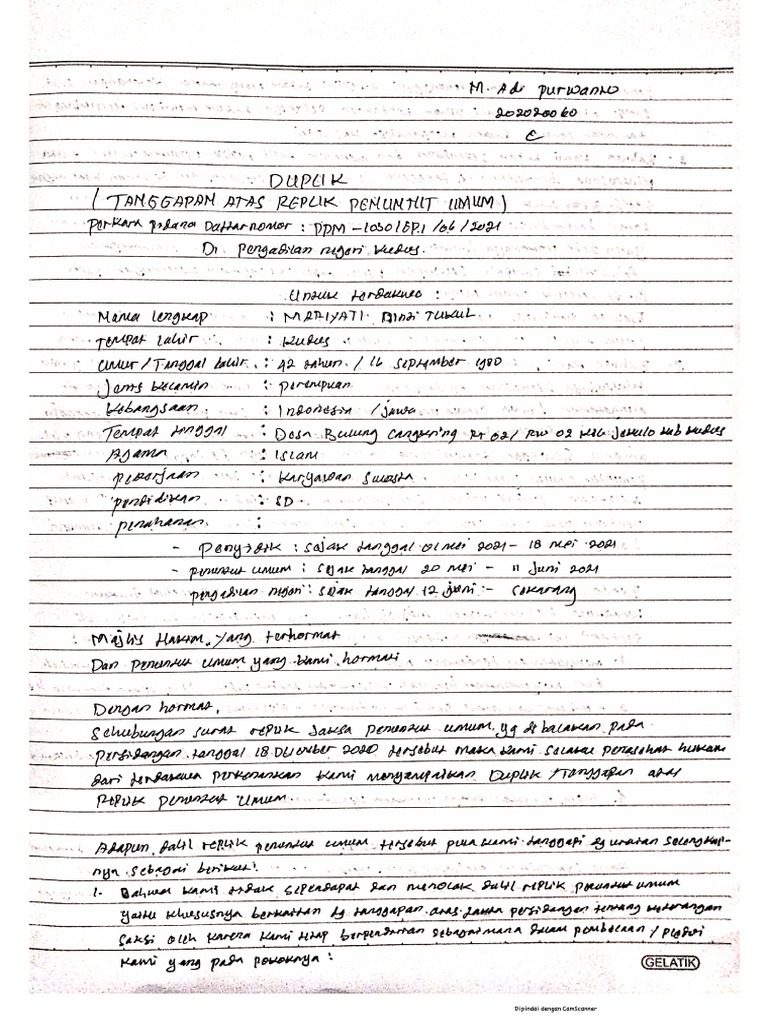 M. Adi Purwanto
202020060
C
DUPLIK
( TANGGAPAN ATAS REPLIK PENUNTUT UMUM )
Perkara pidana Daftar nomor : PDM - 1030/EP.1 /06/2021
Di Pengadilan negeri kudus.
Untuk terdakwa :
Nama lengkap : MARIYATI Binti TUKUL
Tempat lahir : Kudus
Umur / Tanggal lahir : 42 tahun / 16 September 1980
Jenis kelamin : perempuan
Kebangsaan : Indonesia / jawa
Tempat tinggal : Desa Bulung Cangkring Rt 02/ RW 02 Kec Jekulo kab kudus
Agama : Islam
pekerjaan : Karyawan Swasta
pendidikan : SD
penahanan :
- Penyidik : sejak tanggal 01 mei 2021 - 18 mei 2021
- penuntut umum : sejak tanggal 20 mei - 11 Juni 2021
pengadilan negeri : sejak tanggal 12 juni - sekarang
Majlis Hakim yang terhormat
Dan penuntut umum yang kami hormati
Dengan hormat,
Sehubungan surat replik Jaksa penuntut umum yg di bacakan pada
persidangan tanggal 18 Desember 2020 tersebut maka kami selaku penasehat hukum
dari terdakwa perkenankan kami menyampaikan Duplik / Tanggapan atas
Replik penuntut umum.
Adapun dalil replik penuntut umum tersebut kami tanggapi dg uraian selengkap-
nya sebagai berikut:
1. Bahwa kami tidak sependapat dan menolak dalil replik penuntut umum
yaitu khususnya berkaitan dg tanggapan atas fakta persidangan tentang keterangan
saksi oleh karena kami tetap berpendirian sebagaimana dalam pembelaan / pledoi
kami yang pada pokoknya :
GELATIK
Dipindai dengan CamScanner